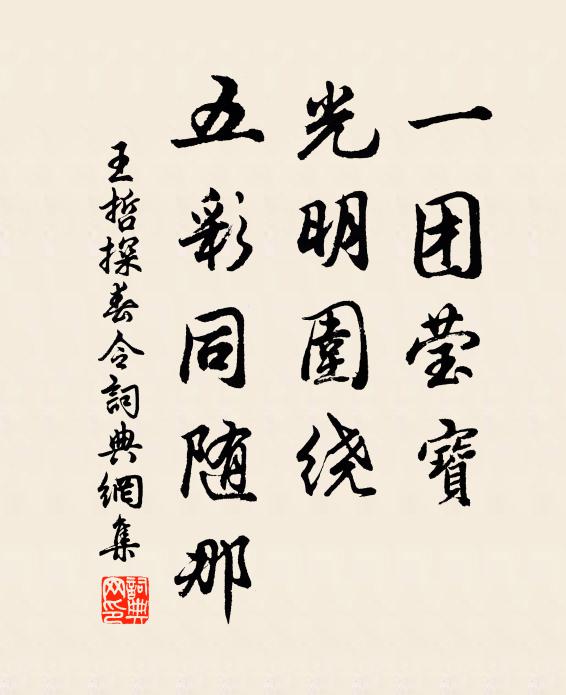 一团莹寶
光明圍绕
五彩同随那
王哲探春令詞典網集
詞典网印